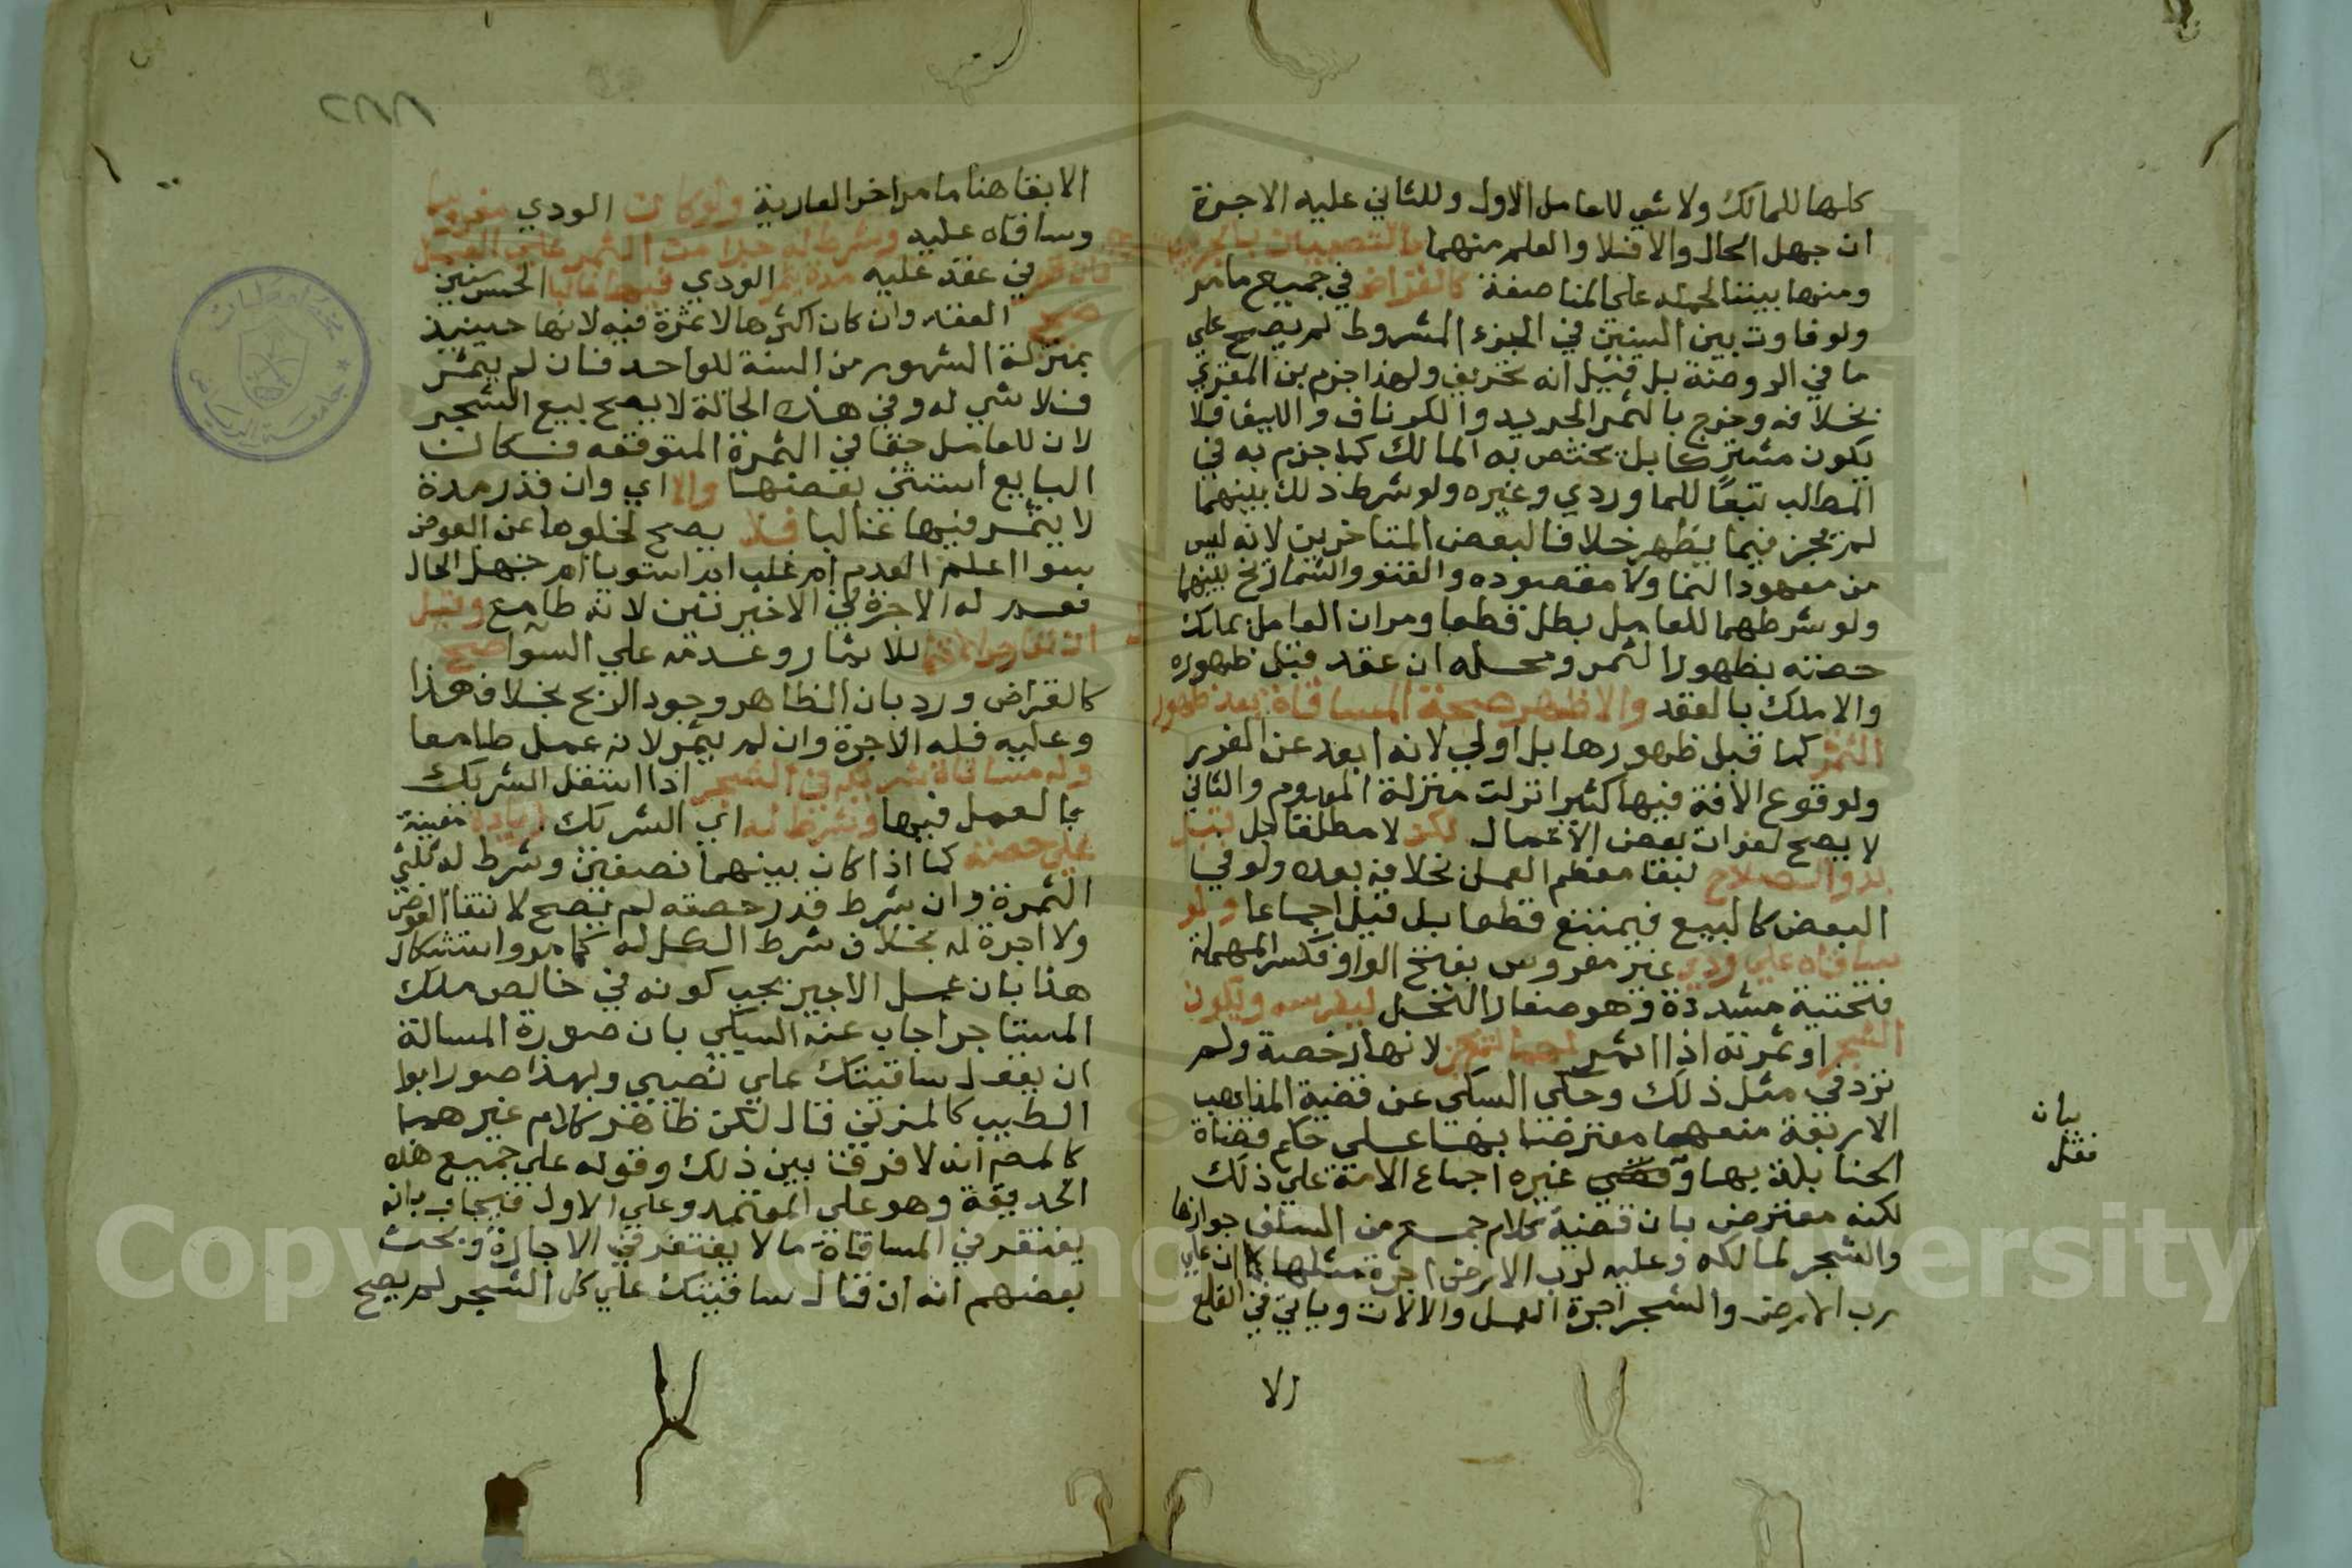 كلها للمالك ولا شي للعامل الاول وللثاني عليه الاجرة
ان جهل الحال والا فلا والعلم منهما بالنصيبين بالجزئية
ومنها بيننا لحمله على المناصفة كالقراض في جميع ما مر
ولو فاوت بين السنين في الجزء المشروط لم يصح علي
ما في الروضة بل قيل انه تحريف ولهذا جزم بن المقري
بخلافه وخرج بالثمر الجريد والكرناف والليف فلا
يكون مشتركا بل يختص به المالك كما جزم به في
المطلب تبعا للماوردي وغيره ولو شرط ذلك بينهما
لم يجز فيما يظهر خلافا لبعض المتاخرين لانه ليس
من معهود النما ولا مقصوده والقنو والشماريخ بينهما
ولو شرطهما للعامل بطل قطعا ومر ان العامل يملك
حصته بظهور الثمر ومحله ان عقد قبل ظهوره
والا ملك بالعقد والاظهر صحة المساقاة بعد ظهور
الثمر كما قبل ظهورها بل اولي لانه ابعد عن الغرر
ولوقوع الافة فيها كثيرا نزلت منزلة المعدوم والثاني
لا يصح لفوات بعض الاعمال لكن لا مطلقا بل قبل
بدو الصلاح لبقا معظم العمل بخلافه بعده ولو في
البعض كالبيع فيمتنع قطعا بل قيل اجماعا ولو
ساقاه علي ودي غير مغروس بفتح الواو فكسر المهملة
فتحتية مشددة وهو صغار النخل ليغرسه ويكون
الشجر او ثمرته اذا اثمر لهما لم يجز لانها رخصة ولم
ترد في مثل ذلك وحكي السبكي عن قضية المذاهب
الاربعة منعها معترضا بها علي حكم قضاة
الحنابلة بها و غيره اجماع الامة علي ذلك
لكنه معترض بان قضية كلام جمع من السلف جوازها
والشجر لمالكه وعليه لرب الارض اجرة مثلها كما ان علي
رب الارض والشجر اجرة العمل والالات وياتي في القلع
الا
بيان
نقل
٢٨٨
الابقا هنا ما مر اخر العارية ولو كان الودي مغروسا
وساقاه عليه وشرط له جزا من الثمر علي العمل
فان قدر في عقد عليه مدة يثمر الودي فيها غالبا كخمس سنين
صح العقد وان كان اكثرها لا ثمرة فيه لانها حينيذ
بمنزلة الشهور من السنة للواحد فان لم يثمر
فلا شي له وفي هذه الحالة لا يصح بيع الشجر
لان للعامل حقا في الثمرة المتوقعه فكان
البايع استثني بعضها والا اي وان قدر مدة
لا يثمر فيها غالبا فلا يصح لخلوها عن العوض
سوا اعلم العدم ام غلب ام استويا ام جهل الحال
نعم له الاجرة في الاخيرتين لانه طامع وقيل
ان تعارض احتمال للاثمار وعدمه علي السوا صح
كالقراض ورد بان الظاهر وجود الربح بخلاف هذا
وعليه فله الاجرة وان لم يثمر لانه عمل طامعا
وله مساقاة شريكه في الشجر اذا استقل الشريك
بالعمل فيها وشرط له اي الشريك زيادة معينة
علي حصته كما اذا كان بينهما نصفين وشرط له ثلثي
الثمرة وان شرط قدر حصته لم يصح لانتفا العوض
ولا اجرة له بخلاف شرط الكل له كما مر واستشكال
هذا بان عمل الاجير يجب كونه في خالص ملك
المستاجر اجاب عنه السبكي بان صورة المسالة
ان يقول ساقيتك علي نصيبي وبهذا صور ابوا
الطيب كالمزني قال لكن ظاهر كلام غيرهما
كالمصم انه لا فرق بين ذلك وقوله علي جميع هذه
الحديقة وهو علي المعتمد وعلي الاول فيجاب بانه
يغتفر في المساقاة ما لا يغتفر في الاجارة وبحث
بعضهم انه ان قال ساقيتك علي كل الشجر لم يصح
Copyright © King Saud University